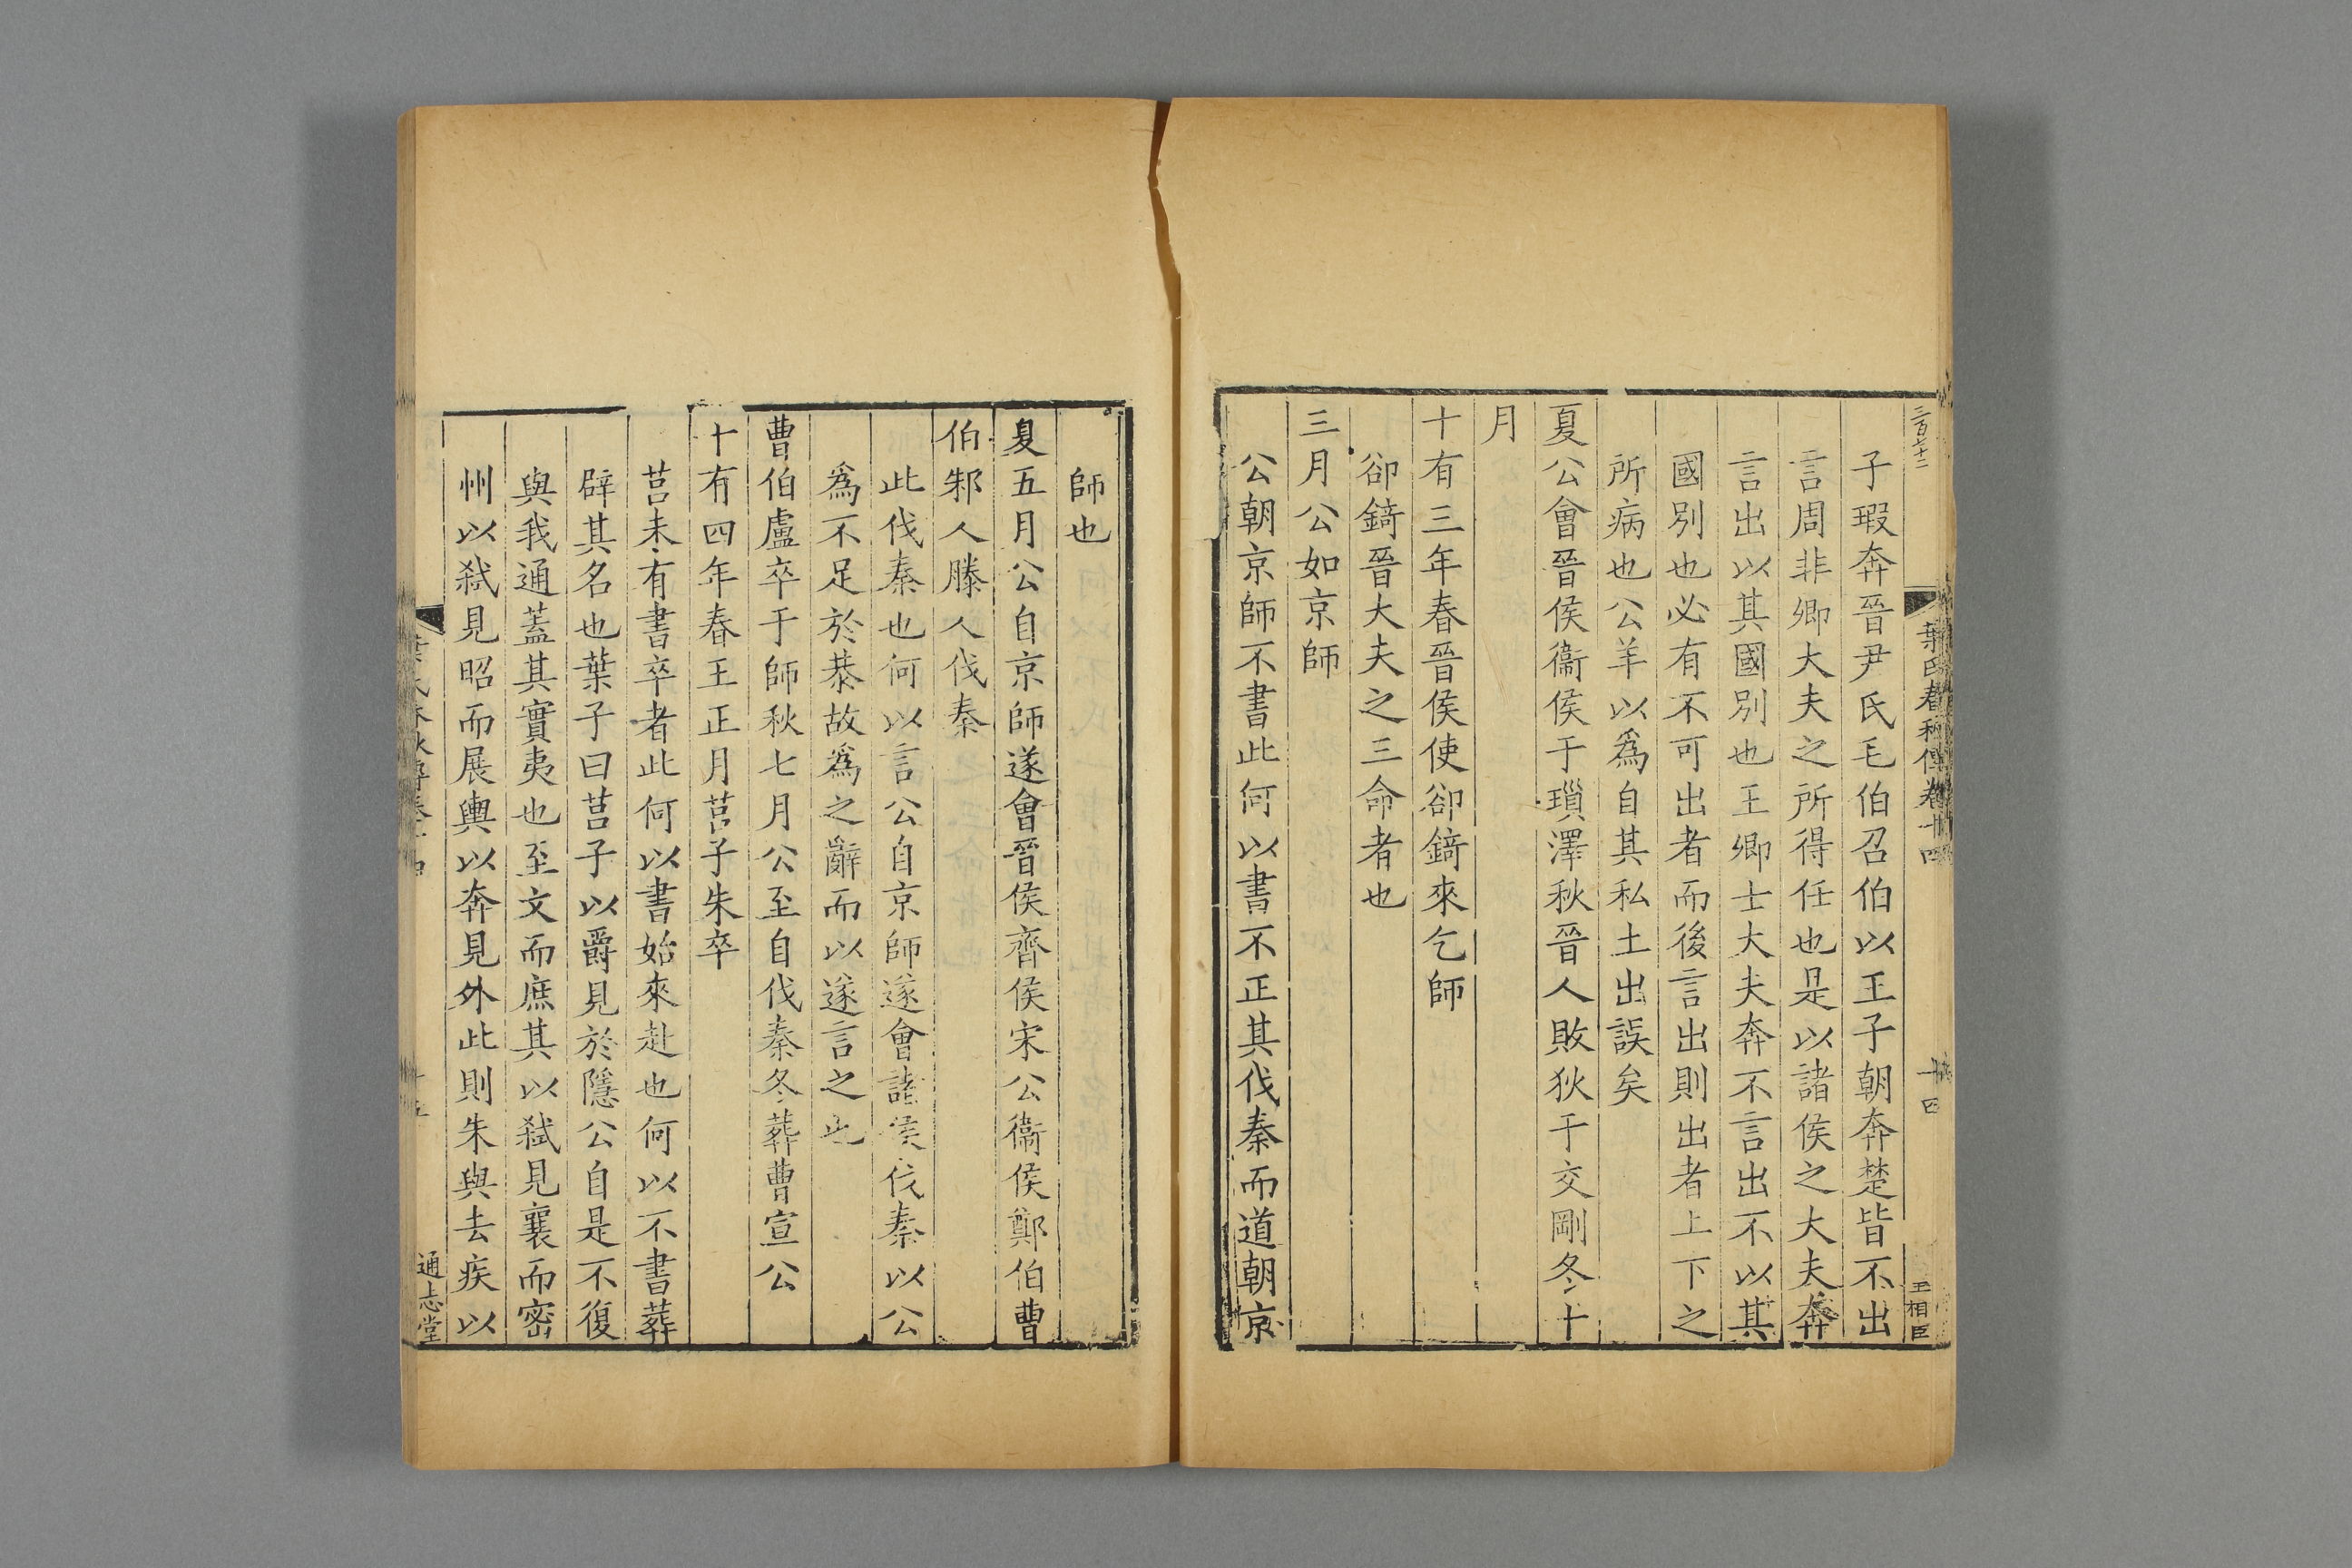 三百七十二
葉氏春秋傳卷十四
十四
王相臣
子瑕奔晉尹氏毛伯召伯以王子朝奔楚皆不出
言周非卿大夫之所得任也是以諸侯之大夫奔
言出以其國別也王卿士大夫奔不言出不以其
國別也必有不可出者而後言出則出者上下之
所病也公羊以爲自其私土出誤矣
夏公會晉侯衞侯于瑣澤秋晉人敗狄于交剛冬十
月
十有三年春晉侯使郤錡來乞師
郤錡晉大夫之三命者也
三月公如京師
公朝京師不書此何以書不正其伐秦而道朝京
師也
夏五月公自京師遂會晉侯齊侯宋公衞侯鄭伯曹
伯邾人滕人伐秦
此伐秦也何以言公自京師遂會諸侯伐秦以公
爲不足於恭故爲之辭而以遂言之也
曹伯盧卒于師秋七月公至自伐秦冬葬曹宣公
十有四年春王正月莒子朱卒
莒未有書卒者此何以書始來赴也何以不書葬
辟其名也葉子曰莒子以爵見於隱公自是不復
與我通蓋其實夷也至文而庶其以弑見襄而密
州以弑見昭而展輿以奔見外此則朱與去疾以
葉氏春秋傳卷十四
十五
通志堂